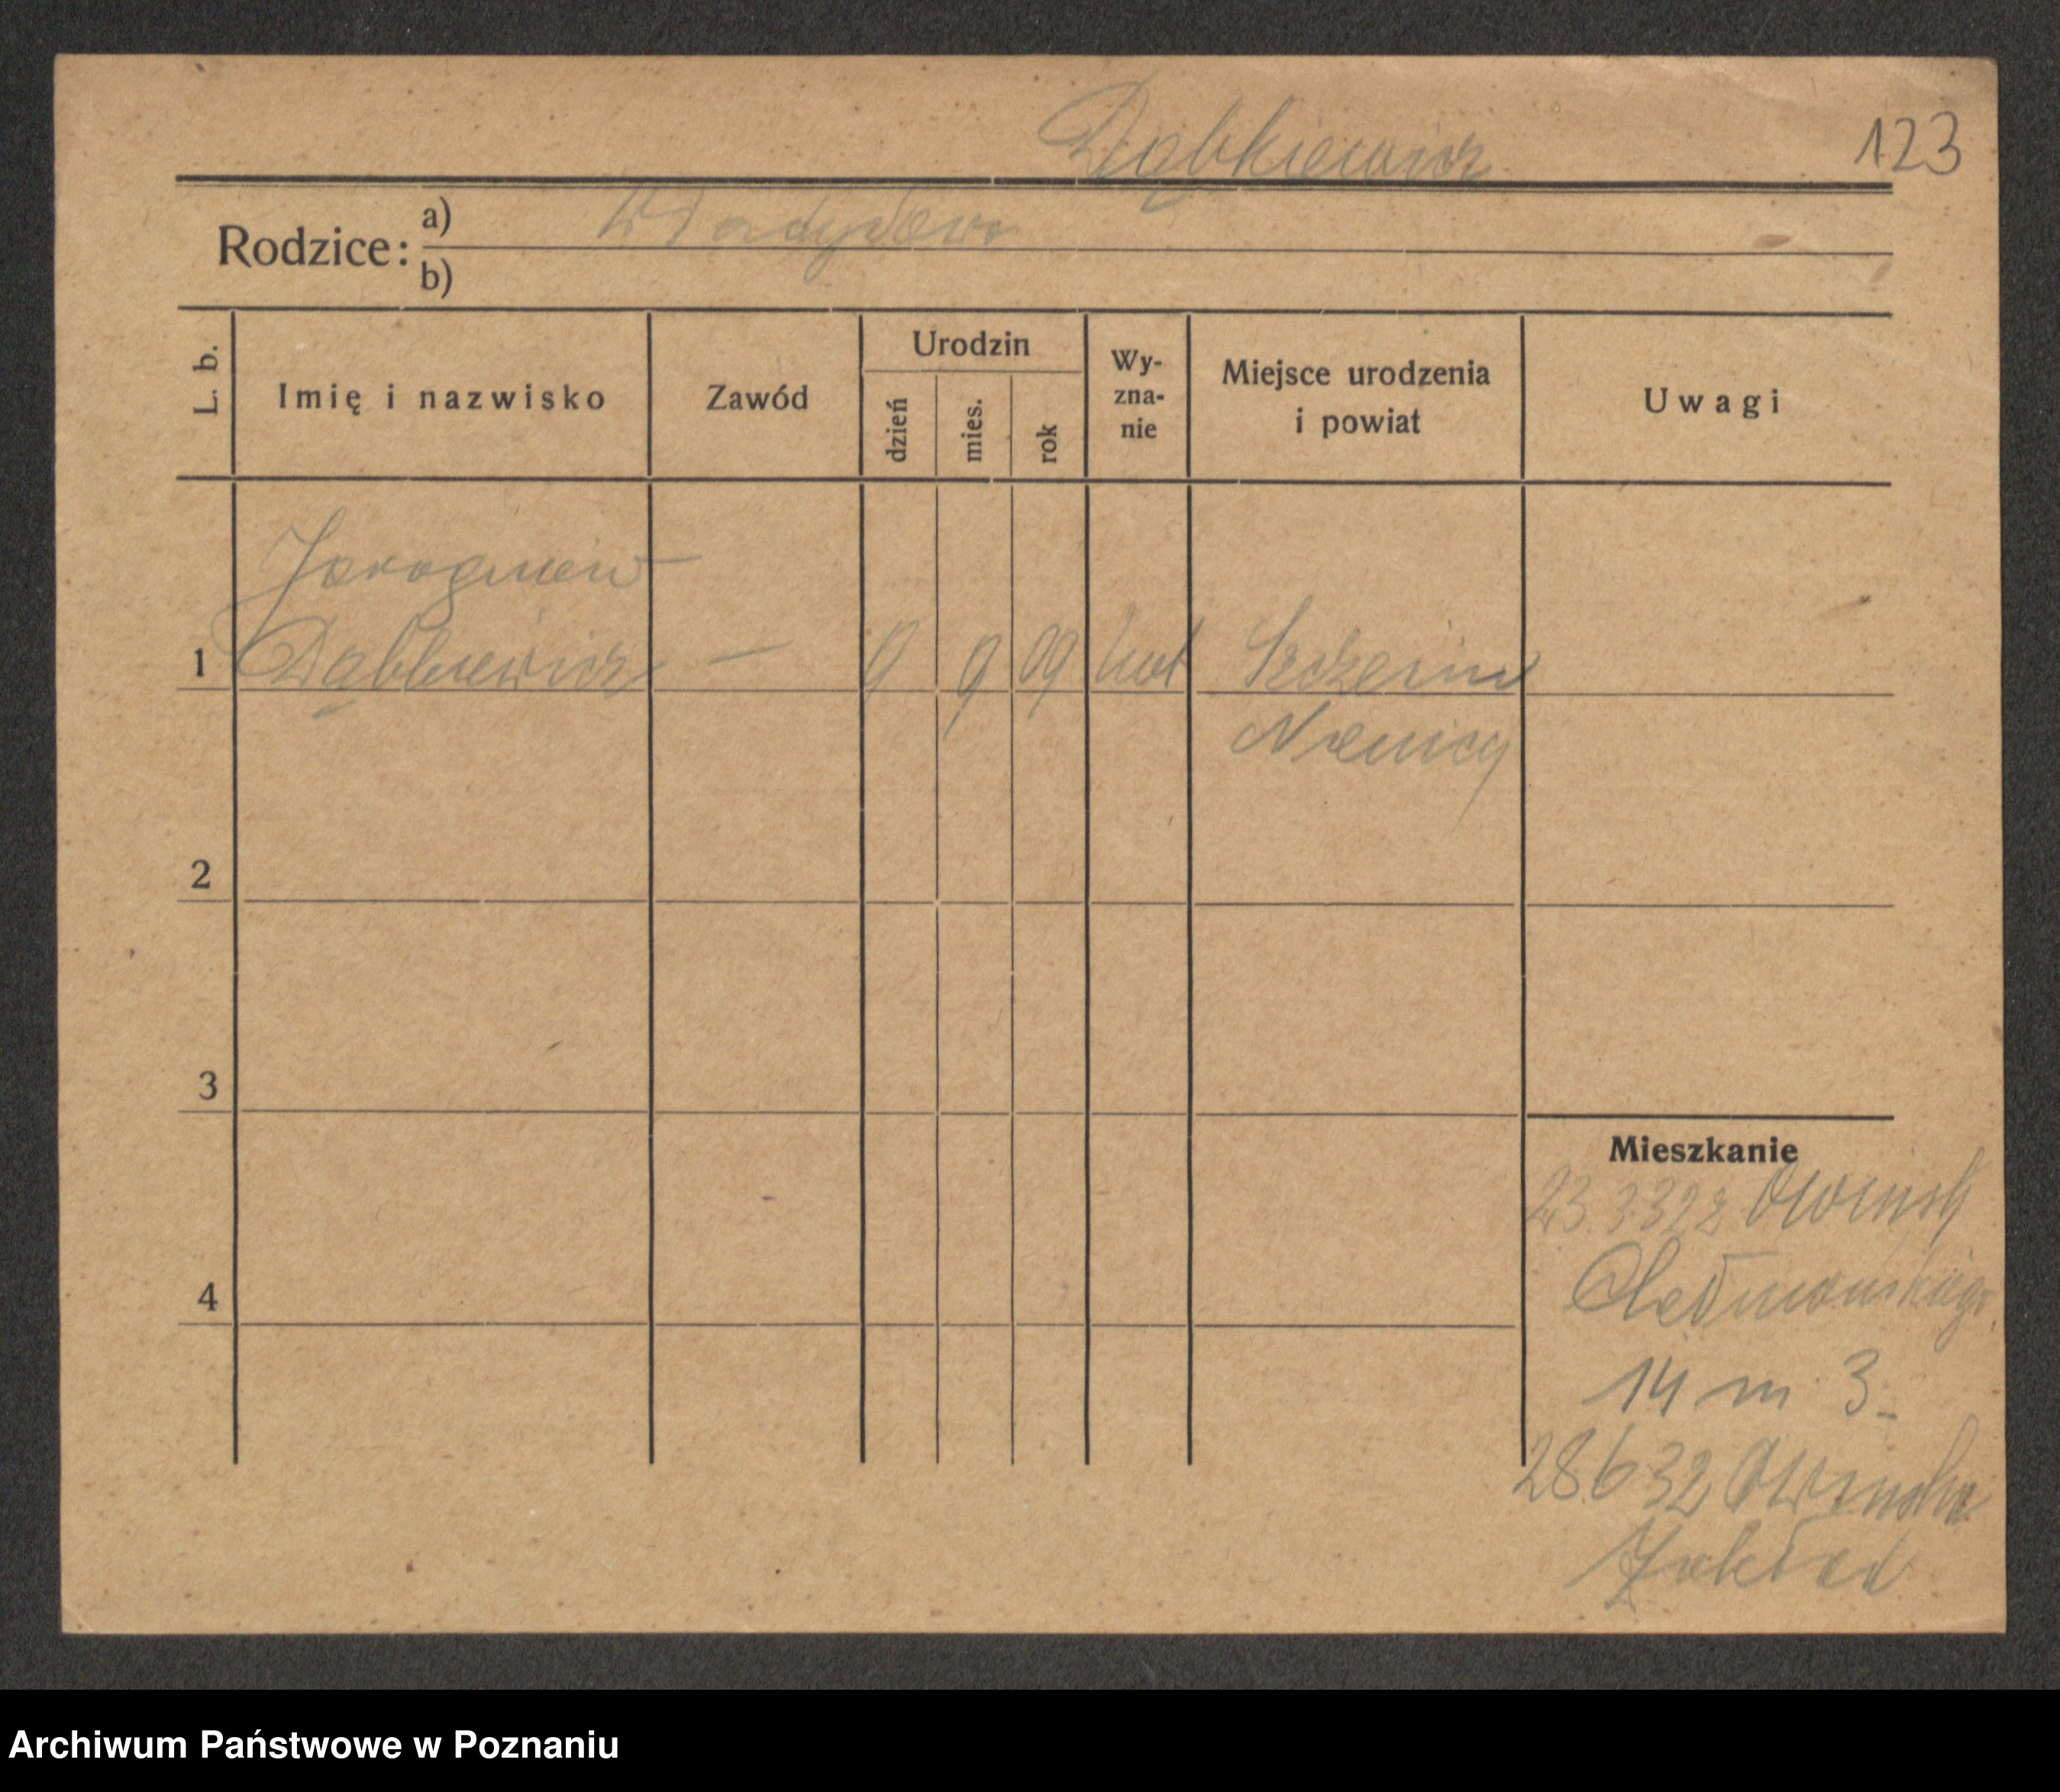 Dąbkiewicz
123
Rodzice:
a) Władysława
b)
L. b.
Imię i nazwisko
Zawód
Urodzin
dzień
mies.
rok
Wy-
zna-
nie
Miejsce urodzenia
i powiat
Uwagi
Jarogniew
1 Dąbkiewicz — 9 9 09 kat Szczecin
Niemcy
2
3
4
Mieszkanie
Owinsk
Chełmońskiego
14 m 3
28.6 32 Owinska
Zakład
Archiwum Państwowe w Poznaniu